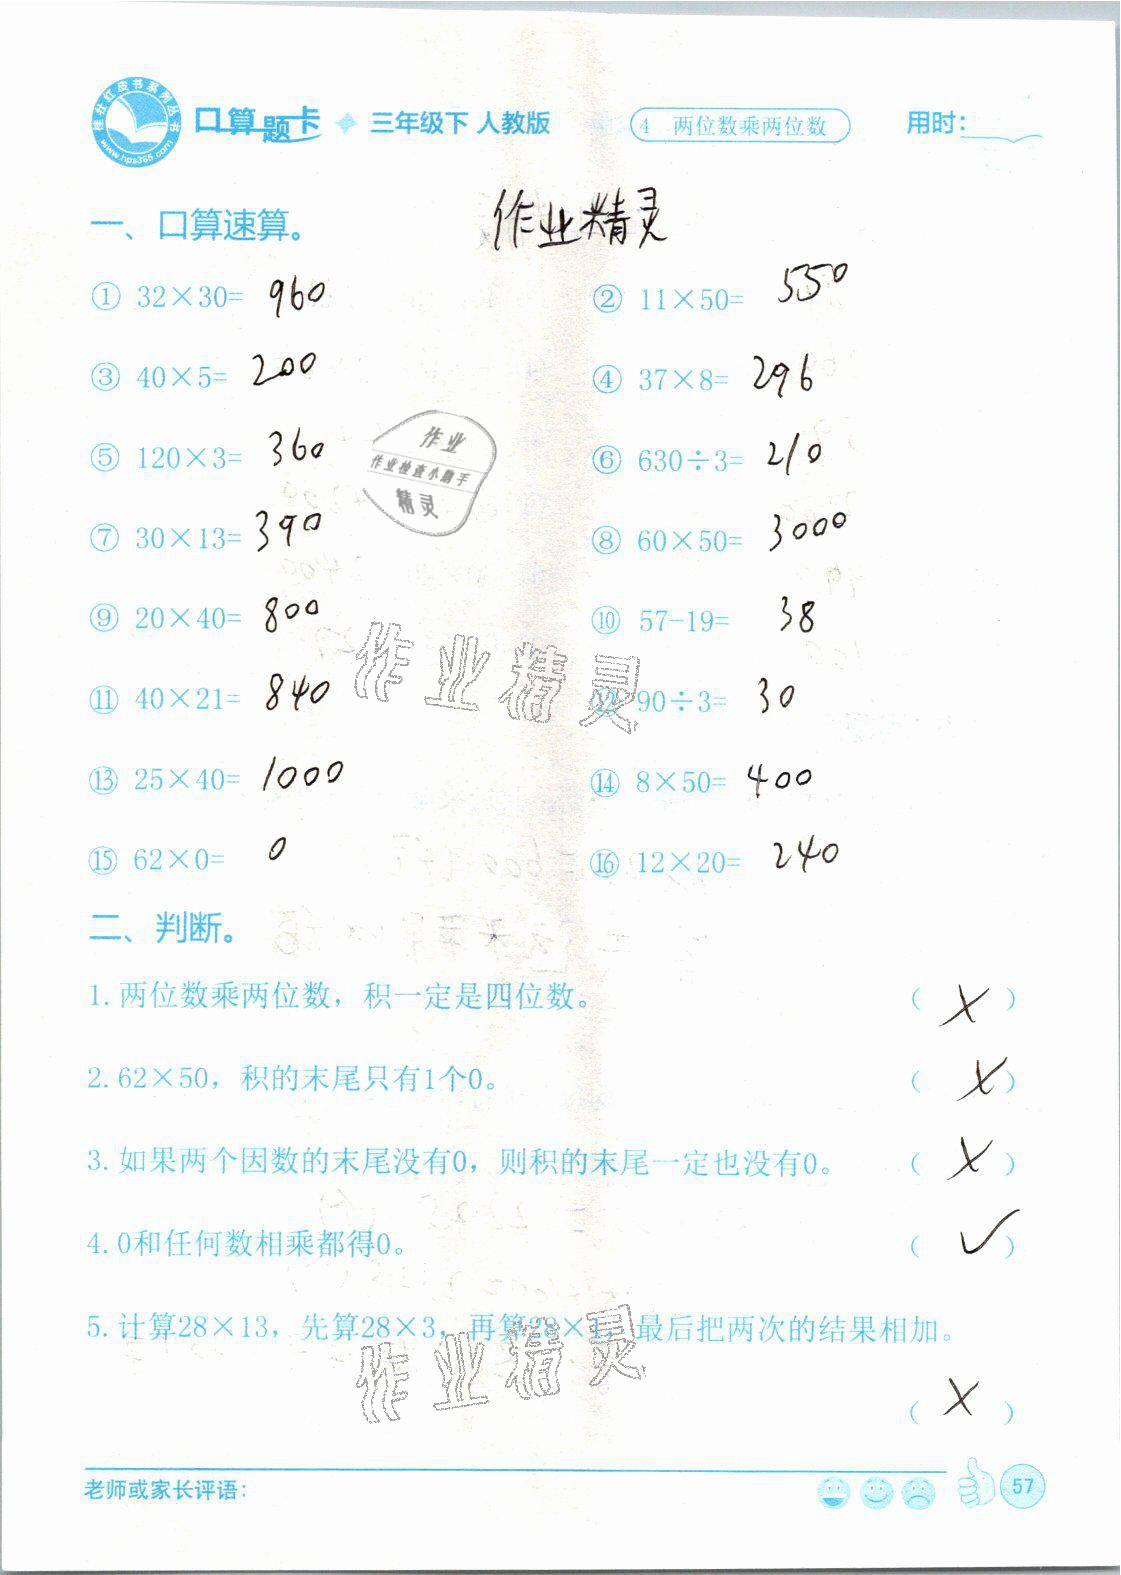 桂壮红皮书系列丛书
www.hps365.com
口算题卡 三年级下 人教版
4 两位数乘两位数
用时：
一、口算速算。
作业精灵
① 32×30= 960
② 11×50= 550
③ 40×5= 200
④ 37×8= 296
⑤ 120×3= 360
⑥ 630÷3= 210
作业
作业检查小助手
精灵
⑦ 30×13= 390
⑧ 60×50= 3000
⑨ 20×40= 800
⑩ 57-19= 38
作业精灵
⑪ 40×21= 840
⑫ 90÷3= 30
⑬ 25×40= 1000
⑭ 8×50= 400
⑮ 62×0= 0
⑯ 12×20= 240
二、判断。
1.两位数乘两位数，积一定是四位数。 （ × ）
2.62×50，积的末尾只有1个0。 （ × ）
3.如果两个因数的末尾没有0，则积的末尾一定也没有0。 （ × ）
4.0和任何数相乘都得0。 （ ✓ ）
5.计算28×13，先算28×3，再算28×1，最后把两次的结果相加。
作业精灵
（ × ）
老师或家长评语：
57